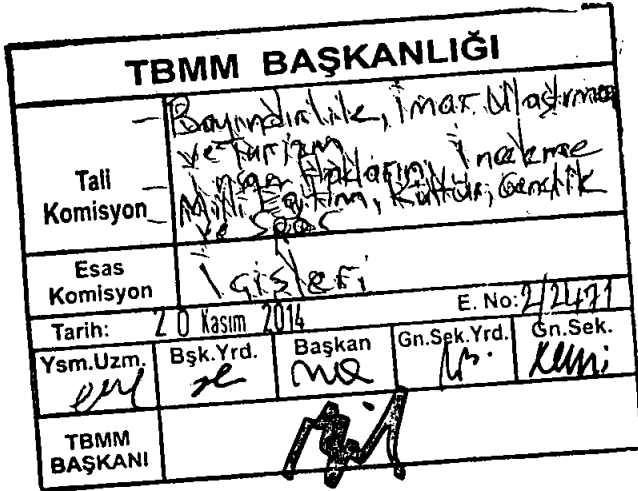 TBMM BAŞKANLIĞI
Tali Komisyon
- Bayındırlık, İmar, Ulaştırma
ve Turizm
- İnsan Haklarını İnceleme
- Milli Eğitim, Kültür, Gençlik
ve Spor
Esas Komisyon
İçişleri
Tarih: 20 Kasım 2014 E. No: 2/2471
Ysm.Uzm. Bşk.Yrd. Başkan Gn.Sek.Yrd. Gn.Sek.
TBMM BAŞKANI